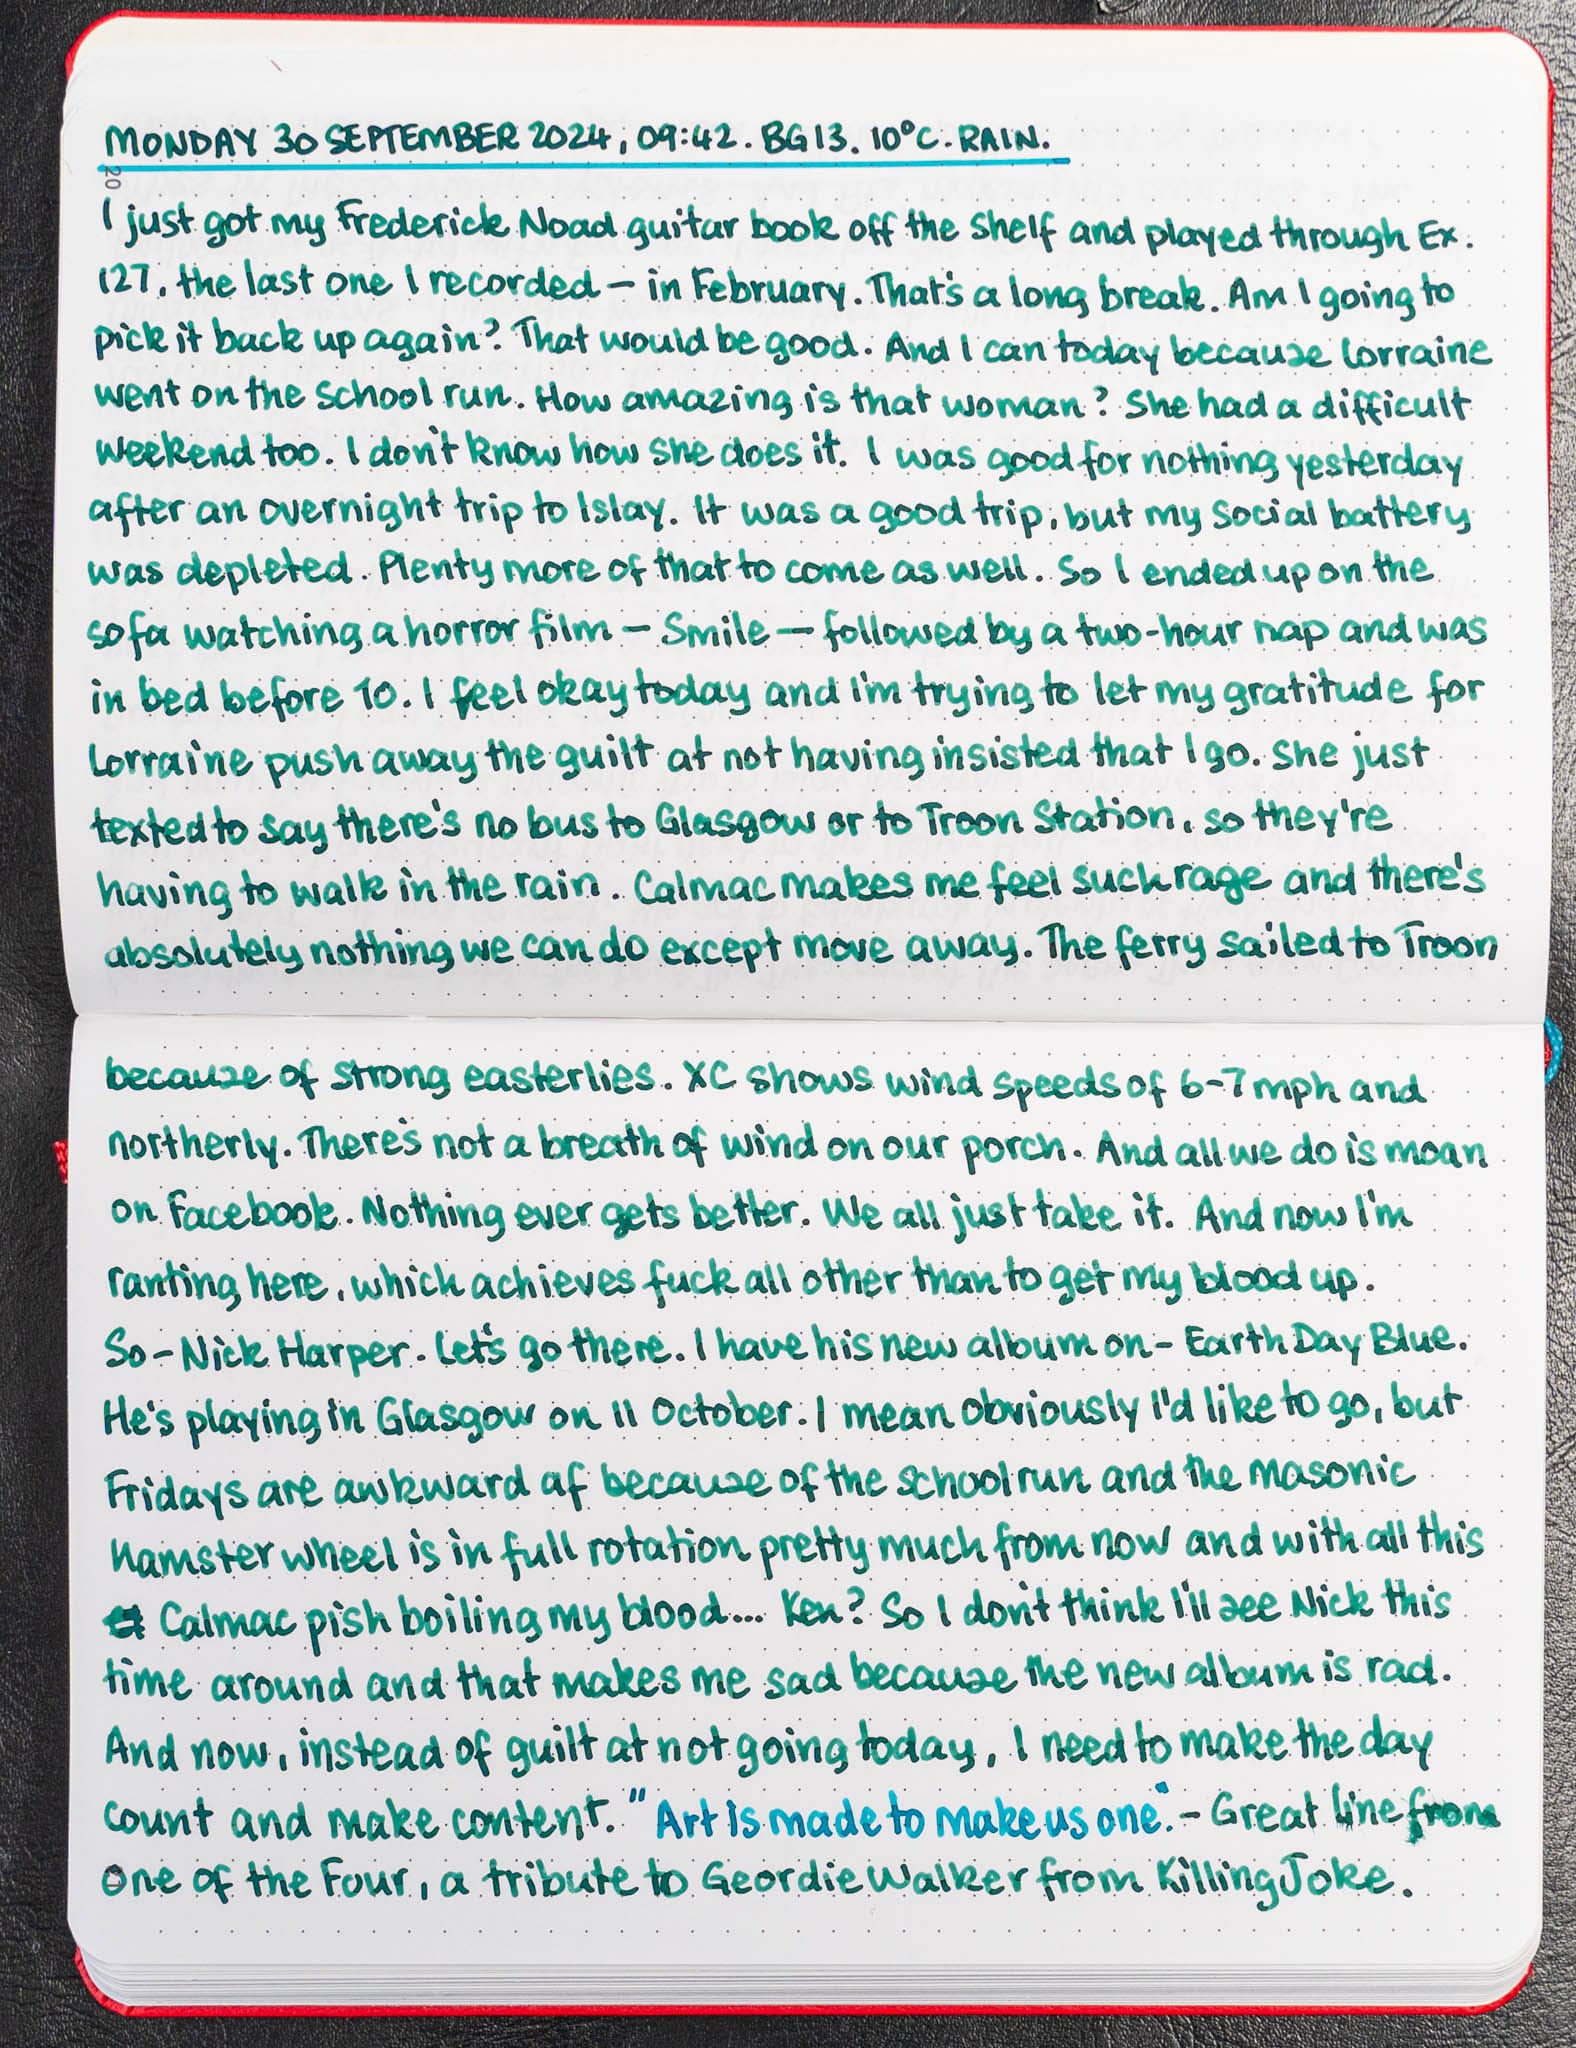 MONDAY 30 SEPTEMBER 2024, 09:42. BG13. 10°C. RAIN.
20
I just got my Frederick Noad guitar book off the shelf and played through Ex.
127, the last one I recorded – in February. That's a long break. Am I going to
pick it back up again? That would be good. And I can today because Lorraine
went on the school run. How amazing is that woman? She had a difficult
weekend too. I don't know how she does it. I was good for nothing yesterday
after an overnight trip to Islay. It was a good trip, but my social battery
was depleted. Plenty more of that to come as well. So I ended up on the
sofa watching a horror film – Smile – followed by a two-hour nap and was
in bed before 10. I feel okay today and I'm trying to let my gratitude for
Lorraine push away the guilt at not having insisted that I go. She just
texted to say there's no bus to Glasgow or to Troon Station, so they're
having to walk in the rain. Calmac makes me feel such rage and there's
absolutely nothing we can do except move away. The ferry sailed to Troon
because of strong easterlies. XC shows wind speeds of 6-7mph and
northerly. There's not a breath of wind on our porch. And all we do is moan
on Facebook. Nothing ever gets better. We all just take it. And now I'm
ranting here, which achieves fuck all other than to get my blood up.
So – Nick Harper. Let's go there. I have his new album on – Earth Day Blue.
He's playing in Glasgow on 11 October. I mean obviously I'd like to go, but
Fridays are awkward af because of the school run and the masonic
hamster wheel is in full rotation pretty much from now and with all this
Calmac pish boiling my blood... Ken? So I don't think I'll see Nick this
time around and that makes me sad because the new album is rad.
And now, instead of guilt at not going today, I need to make the day
count and make content. "Art is made to make us one." – Great line from
One of the Four, a tribute to Geordie Walker from Killing Joke.